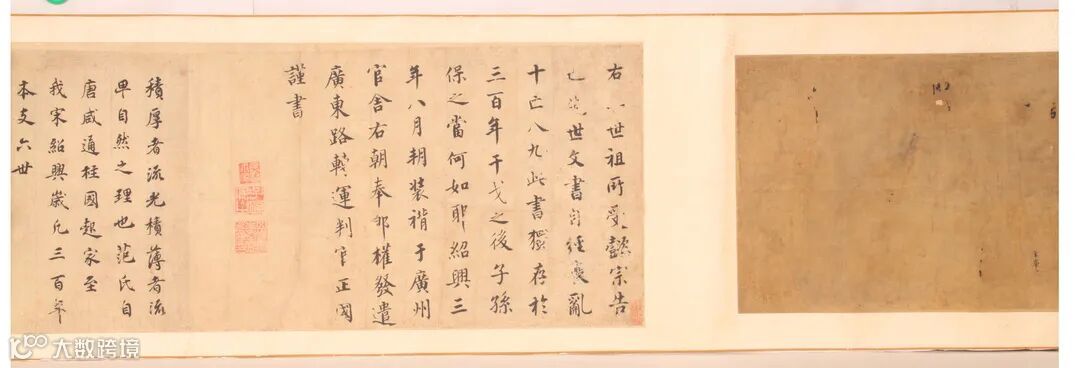 右八世祖所受懿宗告
也先世文書自經變亂
十亡八九此書獨存於
三百年干戈之後子孫
保之當何如耶紹興三
年八月朝裝褙于廣州
官舍右朝奉郎權發遣
廣東路轉運判官正國
謹書
積厚者流光積薄者流
卑自然之理也范氏自
唐咸通柱國起家至
我宋紹興歲凡三百年
本支六世
大数跨境